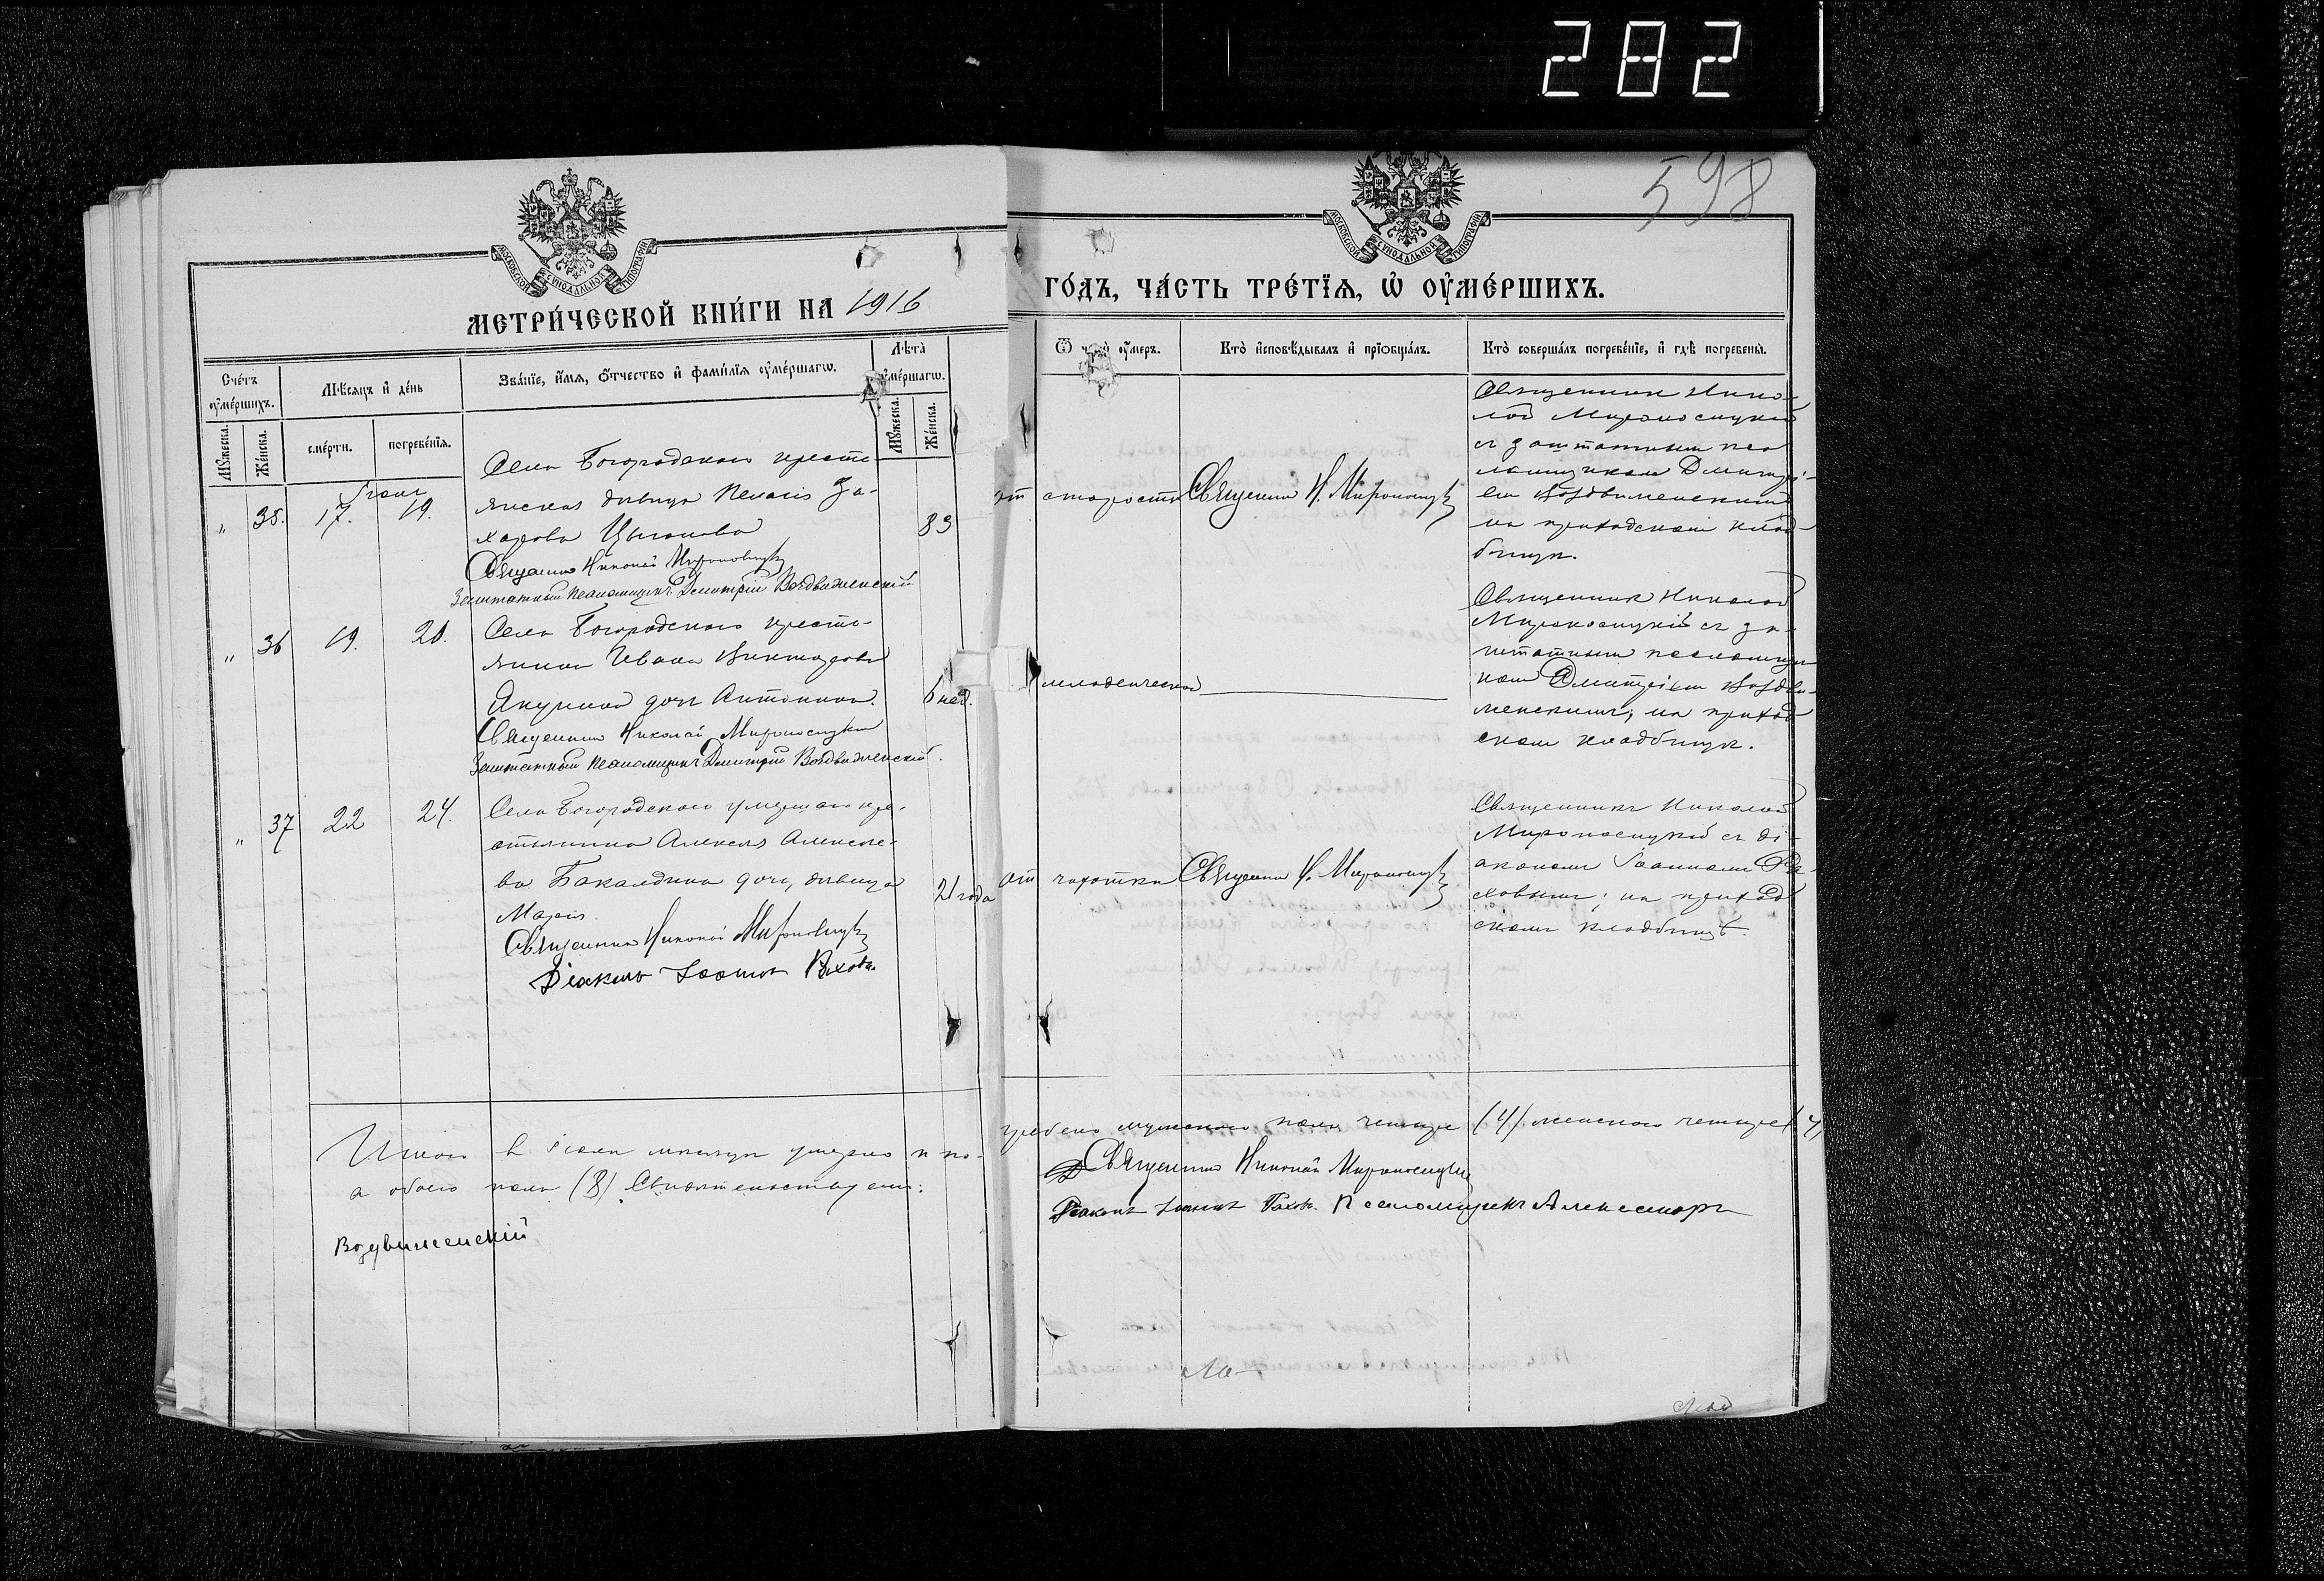 282
598
МОСКОВСКОЙ СѴНОДАЛЬНОЙ ТИПОГРАФІИ
МОСКОВСКОЙ СѴНОДАЛЬНОЙ ТИПОГРАФІИ
МЕТРИ́ЧЕСКОЙ КНИ́ГИ НА 1916
ГО́ДЪ, ЧА́СТЬ ТРЕ́ТЇѦ, Ѡ҆ ОУ҆МЕ́РШИХЪ.
Сче́тъ оу҆ме́ршихъ.
Мꙋ́жеска.
Же́нска.
Мѣ́сѧцъ и҆ де́нь
сме́рти.
погребе́нїѧ.
Зва́нїе, и҆́мѧ, ѻ҆́тчество и҆ фами́лїѧ оу҆ме́ршагѡ.
Лѣ̀та оу҆ме́ршагѡ.
Мꙋ́жеска.
Же́нска.
Ѿ чегѡ̀ оу҆́меръ.
Кто̀ и҆сповѣ́дывалъ и҆ прїѡбща́лъ.
Кто̀ соверша́лъ погребе́нїе, и҆ гдѣ̀ погребены̀.
" 35. 17. Іюнь 19.
Села Богородскаго кресть
янская дѣвица Пелагія За-
харова Цыганова
83
Священникъ Николай Мироносицкій
Заштатный псаломщикъ Димитрій Воздвиженскій
отъ старости
Священникъ Н. Мироносицкій
Священникъ Нико-
лай Мироносицкій
съ заштатнымъ пса
ломщикомъ Димитрі-
емъ Воздвиженскимъ
на приходскомъ клад-
бищѣ.
" 36 19. 20.
Села Богородскаго кресть-
янина Ивана Викторова
Акулина дочь Антонина.
6 нед.
Священникъ Николай Мироносицкій
Заштатный псаломщикъ Димитрій Воздвиженскій.
младенческой
Священникъ Николай
Мироносицкій съ за-
штатнымъ псаломщи
комъ Димитріемъ Воздви-
женскимъ, на приход
скомъ кладбищѣ.
" 37 22 24.
Села Богородскаго умершаго кре-
стьянина Алексѣя Алексѣе-
ва Бакалдина дочь, дѣвица
Марія.
21 года
Священникъ Николай Мироносицкій
Діаконъ Іоаннъ
отъ чахотки
Священникъ Н. Мироносицкій
Священникъ Николай
Мироносицкій съ ді-
акономъ Іоанномъ
на приход
скомъ кладбищѣ.
Итого въ іюнѣ мѣсяцѣ умерло и по-
гребено мужскаго пола четыре (4) женскаго четыре (4)
а обоего пола (8) Свидѣтельствуемъ:
Священникъ Николай Мироносицкій
Діаконъ Іоаннъ Псаломщикъ Александръ
Воздвиженскій